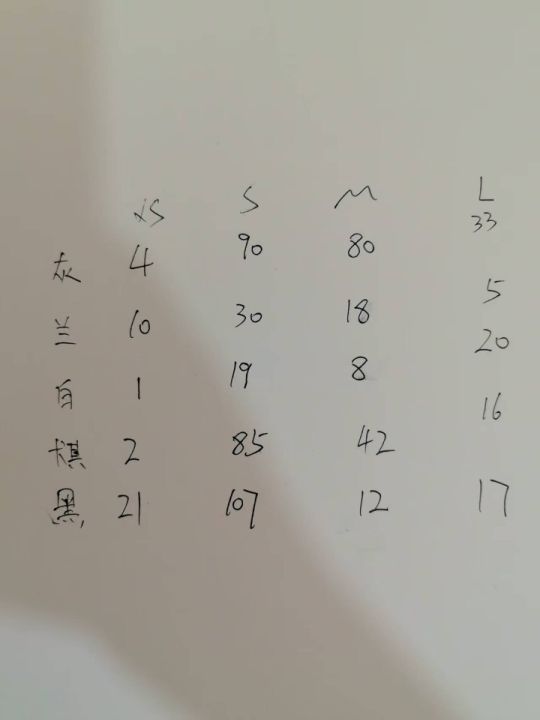 XS S M L
灰 4 90 80 33
兰 10 30 18 5
白 1 19 8 20
棋 2 85 42 16
黑 21 107 12 17